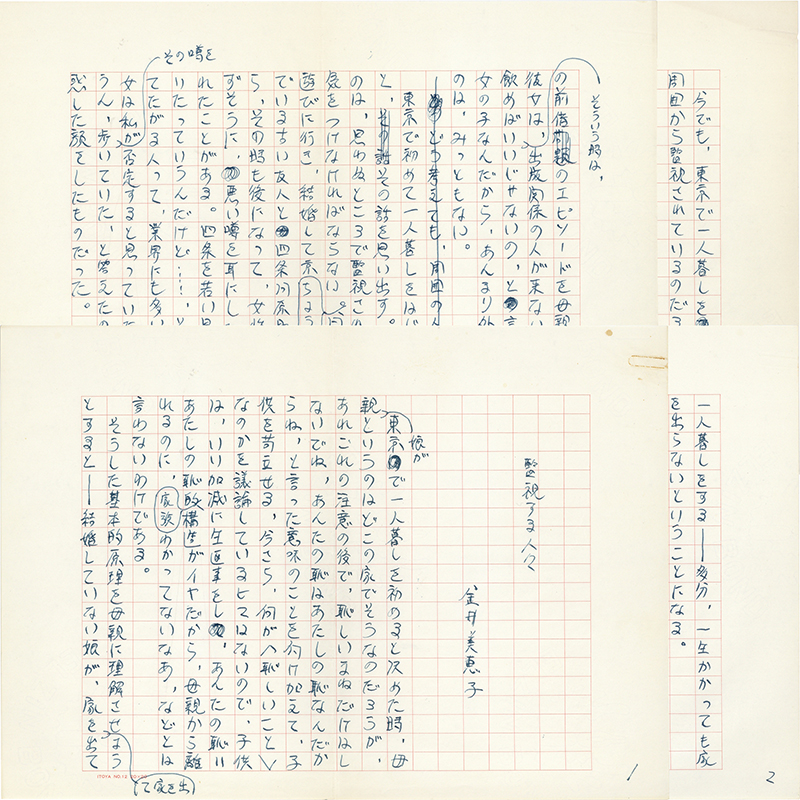 監視する人々
金井美恵子
娘が
東京で一人暮しを初めると決めた時、母
親というのはどこの家でそうなのだろうが、
あれこれの注意の後で、恥しいまねだけはし
ないでね、あんたの恥はあたしの恥なんだか
らね、と言った意味のことを付け加えて、子
供を苛立せる。今さら、何が〈恥しいこと〉
なのかを議論しているヒマはないので、子供
は、いい加減に生返事をし、あんたの恥=
あたしの恥的構造がイヤだから、母親から離
れるのに、家族わかってないなあ、などとは
言わないわけである。
そうした基本的原理を母親に理解させよう
とすると――結婚していない娘が、家を出て
(て家を出)
ITOYA NO.12
1
一人暮しをする――多分、一生かかっても家
を出らないということになる。
2
そういう時は、
の前借のエピソードを母親
彼女は、出版関係の人が来ない
飲めばいいじゃないの、と言
女の子なんだから、あんまり外
のは、みっともない。
――どう考えても、周囲の人
東京で初めて一人暮しをはじ
と、その話を思い出す。
のは、思わぬところで監視さ
気をつけなければならない。
遊びに行き、結婚して京
でいる古い友人と四条河原
ら、その時も後になって、女性
ずそうに悪い噂を耳にし
れたことがある。四条を若い男
いたっていうんだけど……、と
てたがる人って、業界にも多い
その噂を
女は私が否定すると思ってい
うん、歩いていた、と答えた
惑した顔をしたものだった。
今でも、東京で一人暮しを
周囲から監視されているのだ